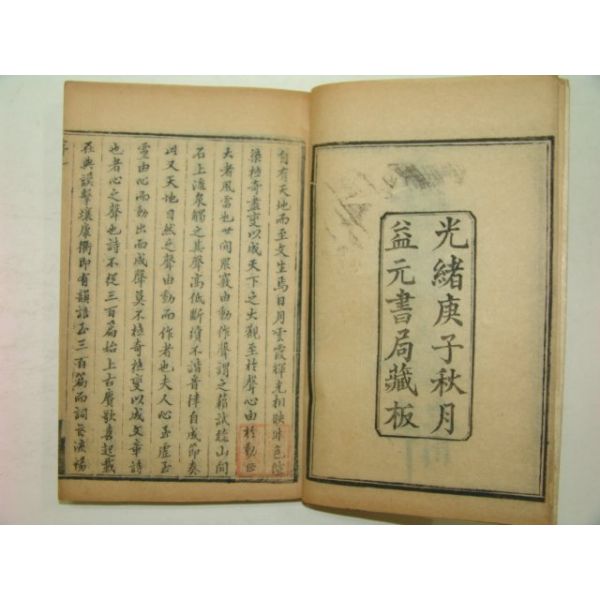 光緒庚子秋月
益元書局藏板
自有天地而至文生焉日月雲霞輝光相映味色信
樂極奇盡變以成天下之大觀至於聲心由於動
大者風雷也世間眾竅由動作聲謂之籟試聽山間
石上流泉觸之其聲高低斷續不諧音律自成節奏
此又天地自然之聲由動而作者也夫人心至虛至
靈由心而動出而成聲莫不極奇極變以成文章詩
也者心之聲也詩不從三百篇始上古唇歌喜起載
在典謨擊壤康衢即有韻語至三百篇而詞
序一